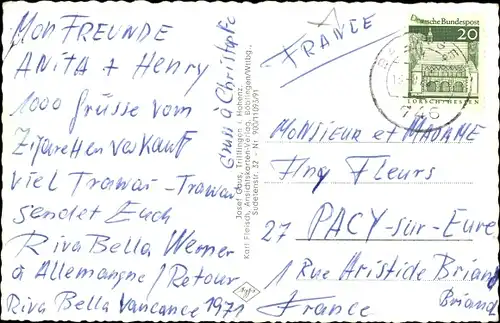 Mon FREUNDE
ANITA + Henry
1000 Grüsse vom
Zigaretten Verkauf
viel Trawai-Trawai
sendet Euch
Riva Bella Werner
a Allemangne / Retour
Riva Bella Vancance 1971
Gruss à Christophe
Josef Claus, Trillfingen i. Hohenz.
Karl Fleisch, Ansichtskarten-Verlag, Böblingen/Wttbg.
Sudetenstr. 32 - Nr. 900/11093/91
FRANCE
Deutsche Bundespost
20
LORSCH/HESSEN
726
MONSIEUR et MADAME
Fleurs
27 PACY-sur-Eure
1 Rue Aristide Briand
Briand
France